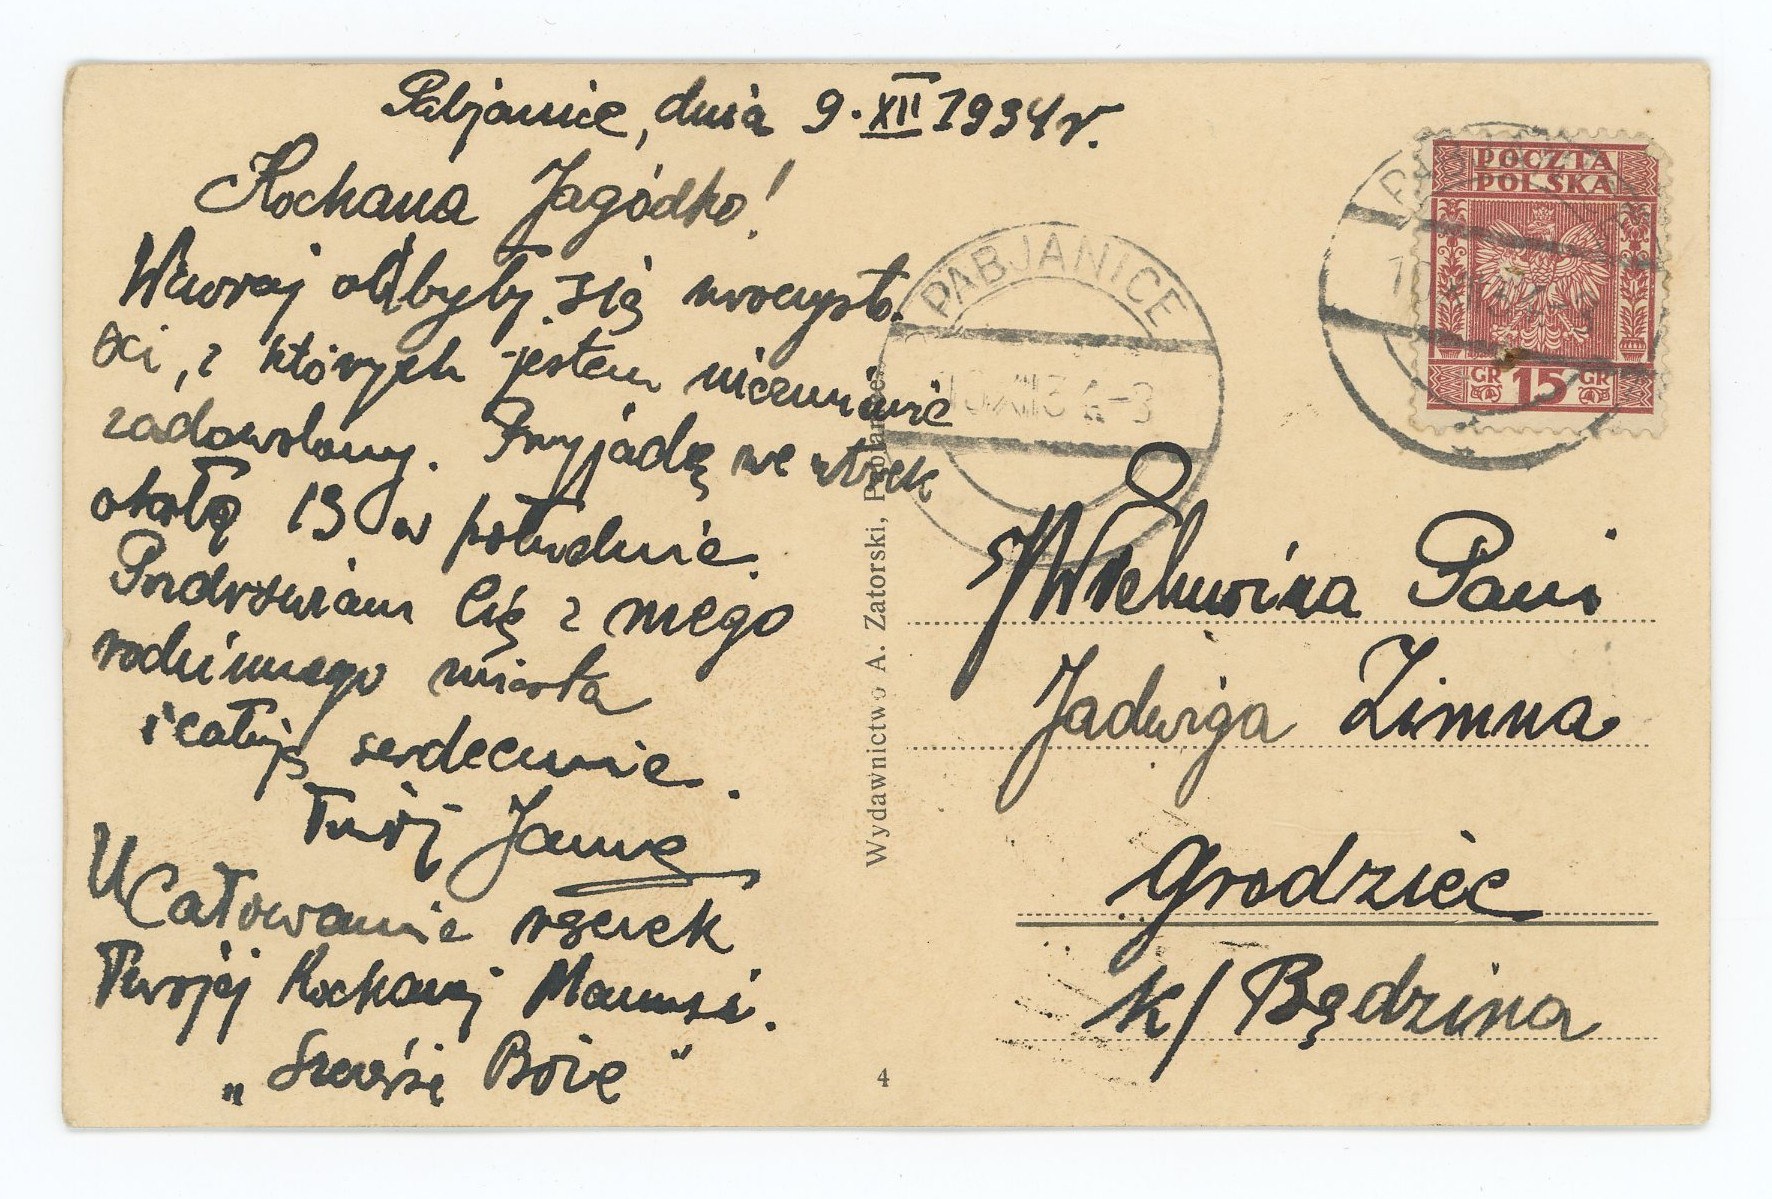 Pabjanice, dnia 9.XII 1934 r.
Kochana Jagódko!
Wczoraj odbyły się uroczysto-
ści, z których jestem niezmiernie
zadowolony. Przyjadę we wtorek
około 13 w południe.
Pozdrawiam Cię z mego
rodzinnego miasta
i całuję serdecznie.
Twój
Ucałowanie rączek
Twojej Kochanej Mamusi.
„Szczęść Boże"
Wydawnictwo A. Zatorski,
4
PABJANICE
10 XII 34-8
POCZTA
POLSKA
GR 15 GR
Wielmożna Pani
Jadwiga Zimna
Grodziec
k/Będzina